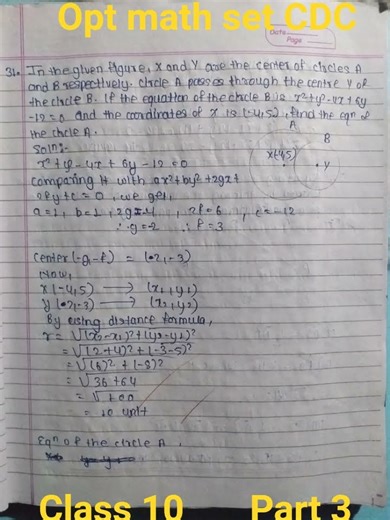 Opt math set CDC
Date
Page
31. In the given figure, X and Y are the center of circles A
and B respectively. Circle A passes through the centre Y of
the circle B. If the equation of the circle B is x²+y²-4x+6y
-12=0 and the coordinates of X is (-4,5), find the eqn of
the circle A.
A
B
X(-4,5)
Y
Soln:-
x²+y²-4x+6y-12=0
Comparing it with ax²+by²+2gx+
2fy+c=0, we get,
a=1, b=1, 2g=-4, 2f=6, c=-12
∴g=-2 ∴f=3
Center(-g,-f) = (2,-3)
Now,
X(-4,5) → (x₁,y₁)
Y(2,-3) → (x₂,y₂)
By using distance formula,
r = √(x₂-x₁)²+(y₂-y₁)²
= √(2+4)²+(-3-5)²
= √(6)²+(-8)²
= √36+64
= √100
= 10 unit
Eqn of the circle A,
Class 10 Part 3